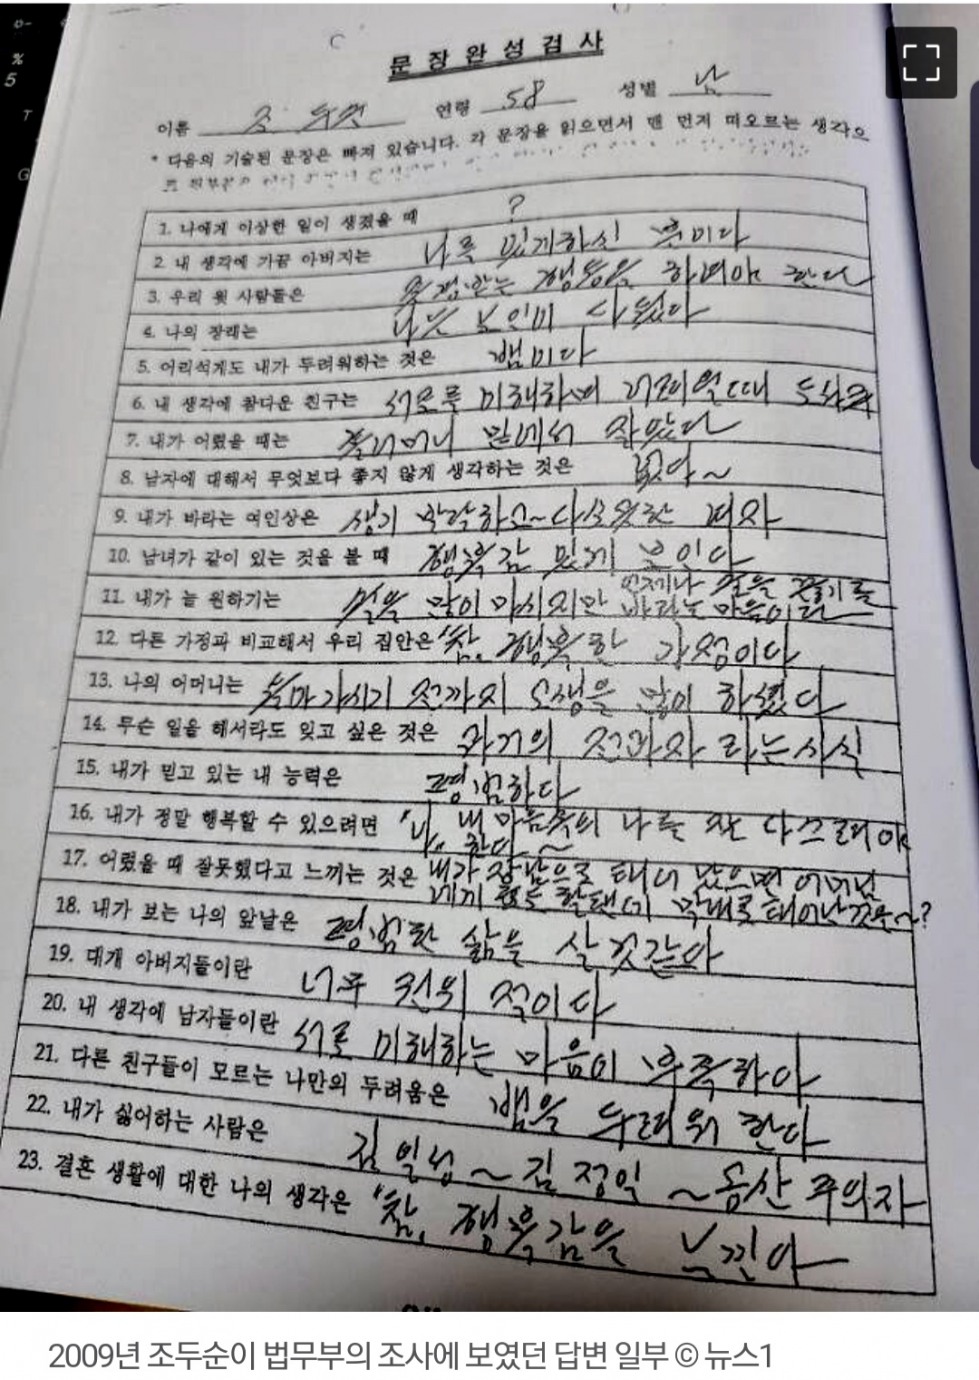 문장완성검사
이름 조두순 연령 58 성별 남
* 다음의 기술된 문장은 빠져 있습니다. 각 문장을 읽으면서 맨 먼저 떠오르는 생각으
1. 나에게 이상한 일이 생겼을 때 ?
2. 내 생각에 가끔 아버지는 나를 있게하신 분이다
3. 우리 윗 사람들은 행동을 하여야 한다
4. 나의 장래는
5. 어리석게도 내가 두려워하는 것은 뱀이다
6. 내 생각에 참다운 친구는 서로를 이해하며 어려울때
7. 내가 어렸을 때는 홀어머니 밑에서 자랐다
8. 남자에 대해서 무엇보다 좋지 않게 생각하는 것은 없다~
9. 내가 바라는 여인상은 생기 박약하고~다소곳한 여자
10. 남녀가 같이 있는 것을 볼 때 행복감 있게 보인다
11. 내가 늘 원하기는 술을 많이 마시지만 언제나 술을 끊기를
바라는 마음이다
12. 다른 가정과 비교해서 우리 집안은 "참, 행복한 가정이다
13. 나의 어머니는 돌아가시기 전까지 고생을 많이 하셨다
14. 무슨 일을 해서라도 잊고 싶은 것은 과거의 전과자 라는사실
15. 내가 믿고 있는 내 능력은 평범하다
16. 내가 정말 행복할 수 있으려면 내 마음속의 나를 잘 다스려야
한다~
17. 어렸을 때 잘못했다고 느끼는 것은 내가 장남으로 태어 났으면 어머님
에게 효도 할텐데 막내로 태어난것은~?
18. 내가 보는 나의 앞날은 평범한 삶을 살것같다
19. 대개 아버지들이란 너무 권위 적이다
20. 내 생각에 남자들이란 서로 이해하는 마음이 부족하다
21. 다른 친구들이 모르는 나만의 두려움은 뱀을 두려워 한다
22. 내가 싫어하는 사람은 김일성~김정일~공산주의자
23. 결혼 생활에 대한 나의 생각은 "참, 행복감을 느낀다
2009년 조두순이 법무부의 조사에 보였던 답변 일부 © 뉴스1